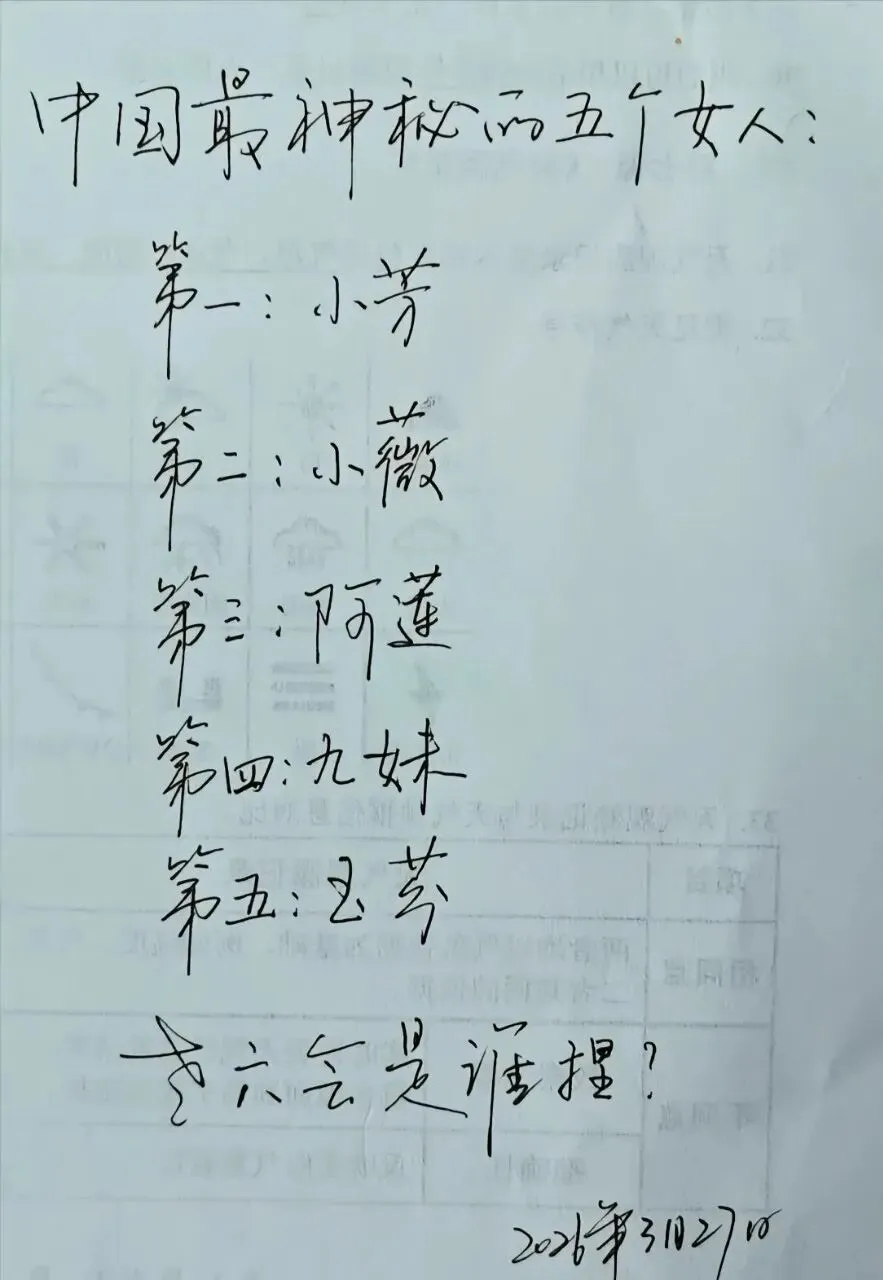 中国最神秘的五个女人:
第一:小芳
第二:小薇
第三:阿莲
第四:九妹
第五:玉芬
老六会是谁捏?
2026年3月27日